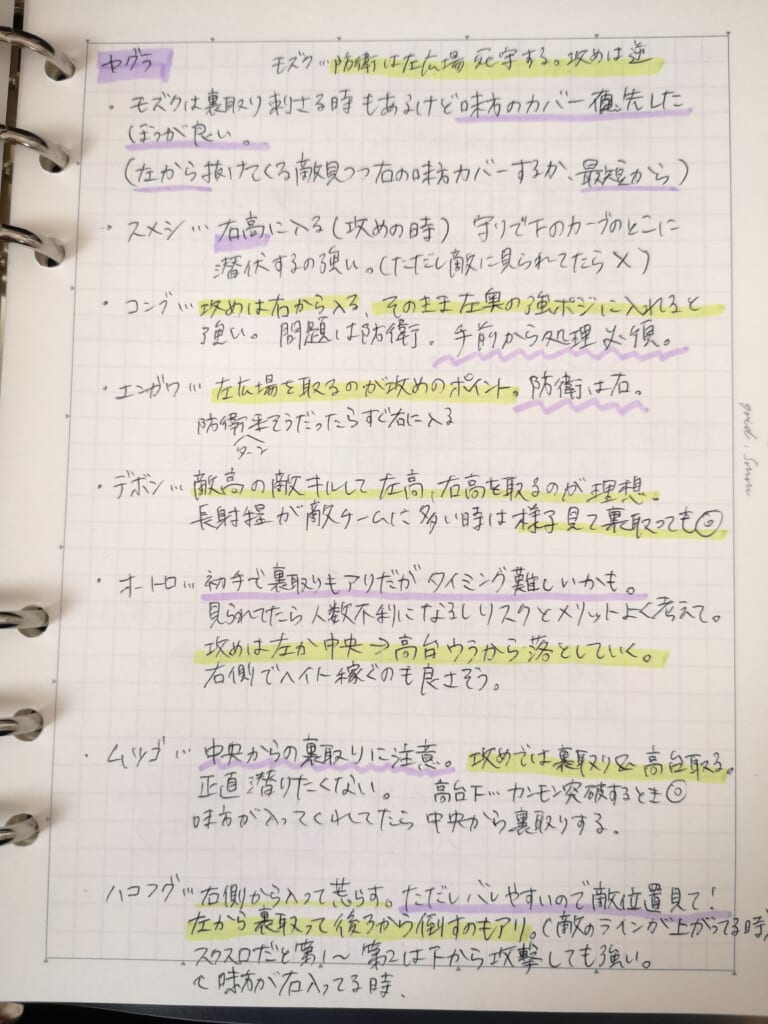 ヤグラ
モズク…防衛は左広場 死守する。攻めは逆
・モズクは裏取り刺さる時もあるけど味方のカバー優先した
ほうが良い。
(左から抜けてくる敵見つつ右の味方カバーするか、最短から)
・スメシ… 右高に入る(攻めの時) 守りで下のカーブのとこに
潜伏するの強い。(ただし敵に見られてたら×)
・コンブ… 攻めは右から入る、そのまま左奥の強ポジに入れると
強い。問題は防衛。手前から処理必須。
・エンガワ… 左広場を取るのが攻めのポイント。防衛は右。
防衛来そうだったらすぐ右に入る
ターン
・デボン… 敵高の敵キルして左高、右高を取るのが理想。
長射程が敵チームに多い時は様子見て裏取っても◎
・オートロ… 初手で裏取りもアリだがタイミング難しいかも。
見られてたら人数不利になるしリスクとメリットよく考えて。
攻めは左か中央→高台ウラから落としていく。
右側でヘイト稼ぐのも良さそう。
・ムツゴ… 中央からの裏取りに注意。攻めでは裏取り& 高台取る。
正直潜りたくない。 高台下… カンモン突破するとき◎
味方が入ってくれてたら中央から裏取りする。
ハコフグ… 右側から入って荒らす。ただしバレやすいので敵位置見て!
左から裏取って後ろから倒すのもアリ。(敵のラインが上がってる時)
スクスロだと第1〜第2は下から攻撃しても強い。
↑味方が右入ってる時.
grid : 5mm